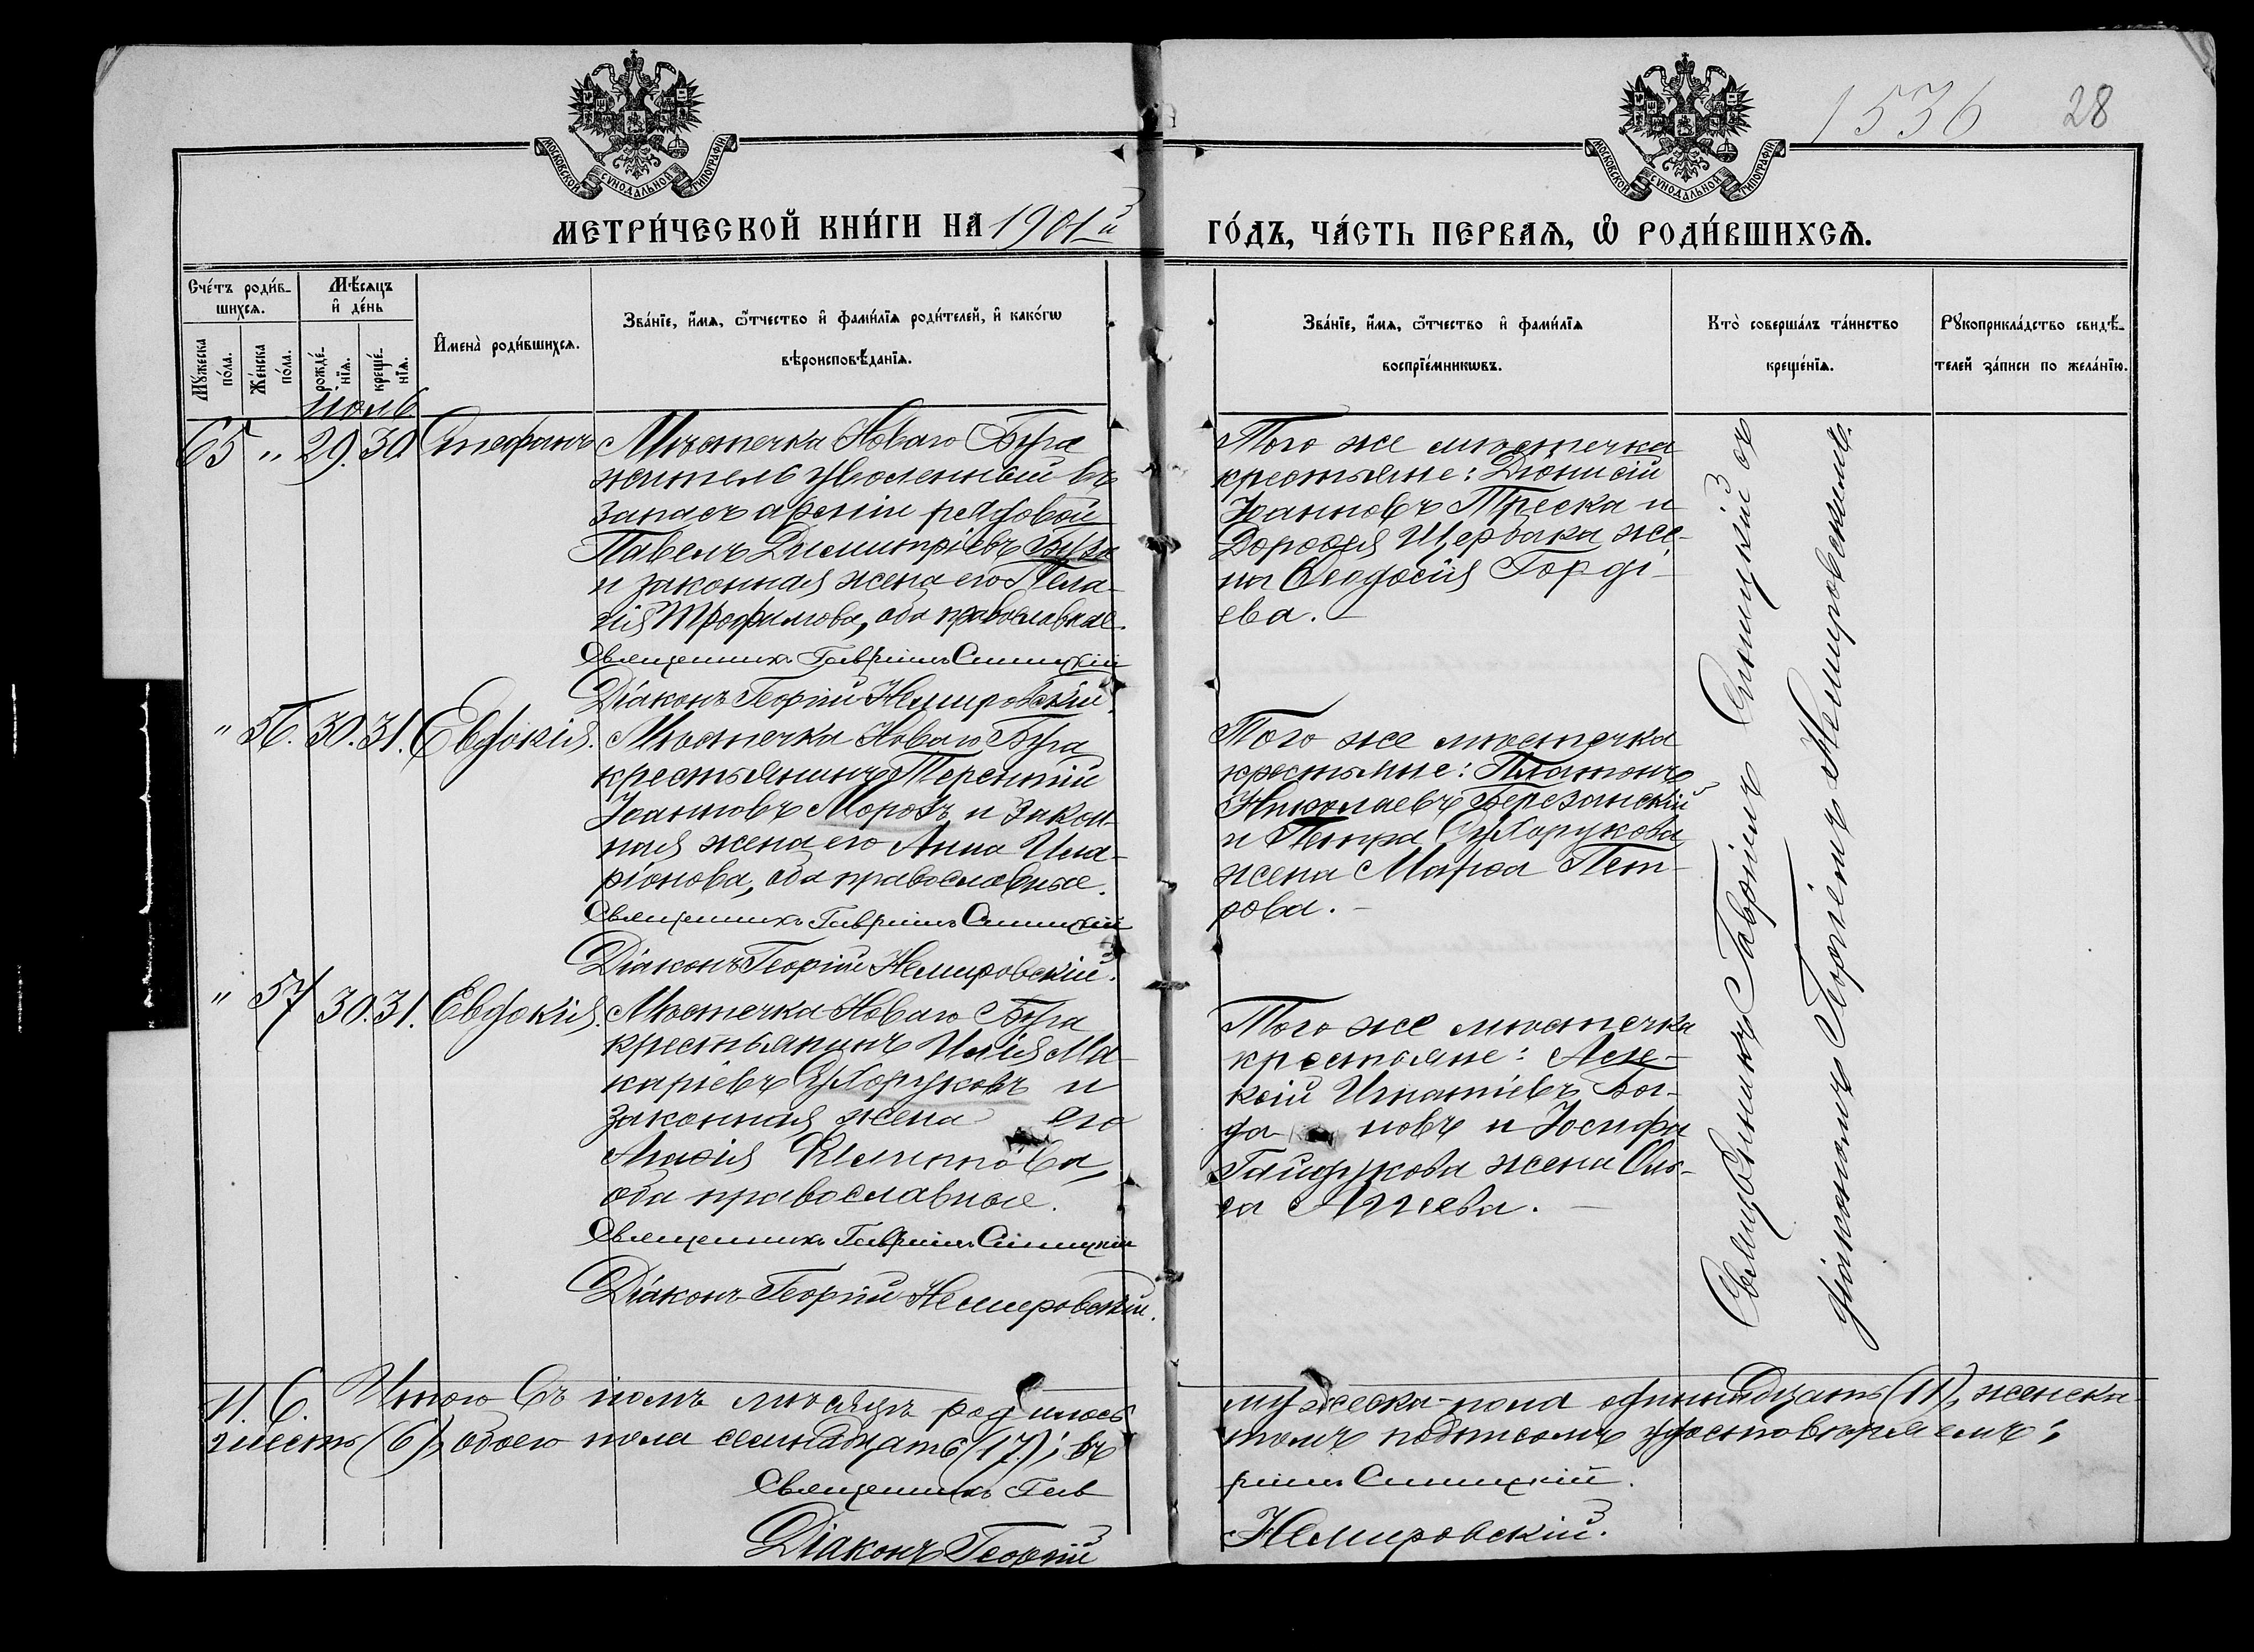 1536 28
МОСКОВСКОЙ СѴНОДАЛЬНОЙ ТИПОГРАФІИ
МОСКОВСКОЙ СѴНОДАЛЬНОЙ ТИПОГРАФІИ
МЕТРИ́ЧЕСКОЙ КНИ́ГИ НА 1901й
ГО́ДЪ, ЧА́СТЬ ПЕРВАѦ, Ѡ҆ РОДИ́ВШИХСѦ.
Сче́тъ роди́в-
шихсѧ.
Мꙋ́жеска по́ла.
Же́нска по́ла.
Мѣ́сѧцъ
и҆ де́нь
рожде́-нїѧ.
креще́-нїѧ.
И҆мена̀ роди́вшихсѧ.
Зва́нїе, и҆́мѧ, ѻ҆́тчество и҆ фами́лїѧ роди́телей, и҆ како́гѡ
вѣроисповѣ́данїѧ.
Зва́нїе, и҆́мѧ, ѻ҆́тчество и҆ фами́лїѧ
воспрїе́мникѡвъ.
Кто̀ соверша́лъ та́инство
креще́нїѧ.
Рꙋкоприкла́дство свидѣ́-
телей за́писи по жела́нїю.
Іюль
65 " 29. 30. Стефанъ
Мѣстечка Новаго Буга
житель уволенный въ
запасъ арміи рядовой
Павелъ Димитріевъ
и законная жена его Пела-
гія Трофимова, оба православные.
Священникъ Гавріилъ Синицкій
Діаконъ Георгій Немировскій.
Того же мѣстечка
крестьяне: Діонисій
Іоанновъ Треска и
Дорофея Щербака же-
на Ѳеодосія Горді-
ева. –
" 56. 30. 31. Евдокія.
Мѣстечка Новаго Буга
крестьянинъ Терентій
Іоанновъ Морозъ и закон-
ная жена его Анна Ила-
ріонова, оба православные.
Священникъ Гавріилъ Синицкій
Діаконъ Георгій Немировскій.
Того же мѣстечка
крестьяне: Платонъ
Николаевъ Березанскій
и Петра Сухорукова
жена Марѳа Пет-
рова. –
" 57 30. 31. Евдокія.
Мѣстечка Новаго Буга
крестьянинъ Илія Ма-
каріевъ Сухоруковъ и
законная жена его
Агафія
оба православные.
Священникъ Гавріилъ Синицкій
Діаконъ Георгій Немировскій.
Того же мѣстечка
крестьяне: Алек-
сій Игнатіевъ Бог-
дановъ и Іосифа
Гайдукова жена Оль-
га
Священникъ Гавріилъ Синицкій съ
діакономъ Георгіемъ Немировскимъ.
11. 6. Итого въ іюлѣ мѣсяцѣ родилось
мужеска пола одиннадцать (11), женска
шесть (6), обоего пола семнадцать (17); въ
томъ подписомъ удостовѣряемъ:
Священникъ Гав
ріилъ Синицкій.
Діаконъ Георгій
Немировскій.